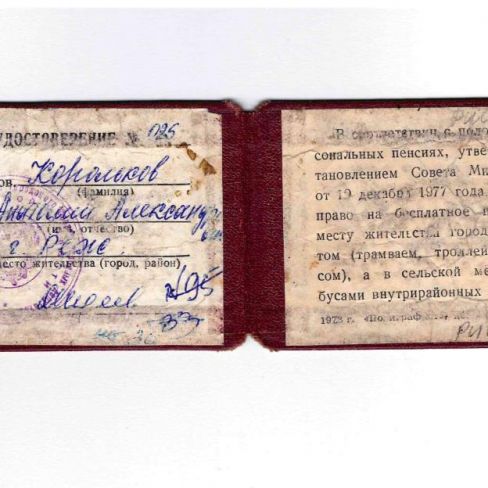 УДОСТОВЕРЕНИЕ № 025
ов. Корольков
(фамилия)
Анатолий Александр
(имя, отчество)
г. Реж
место жительства (город, район)
В соответствии с поло
сональных пенсиях, утве
тановлением Совета Ми
от 19 декабря 1977 года
право на бесплатное п
месту жительства город
том (трамваем, тролле
сом), а в сельской ме
бусами внутрирайонных
1978 г. «Полиграф